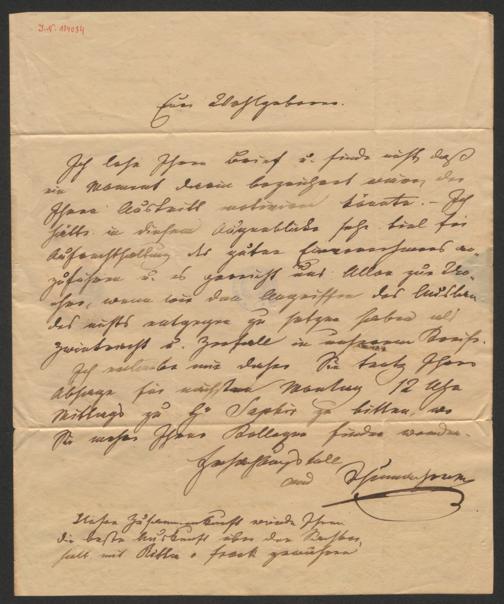 I.N. 184034
Euer Wohlgeboren.
Ich lese Ihren Brief u. finde nicht, daß
ein Moment darin bezeichnet wäre, der
Ihren Austritt motiviren könnte. – Ich
halte in diesem Augenblicke sehr viel für
Aufrechthaltung des guten Einvernehmens
zuführen u. es gereicht uns Allen zur
wenn wir den Angriffen des Auslan-
des nichts entgegen zu setzen haben als
Zwietracht u. Zerfall in unserem Kreise.
Ich erlaube mir daher Sie trotz Ihrer
Absage für nächsten Montag 12 Uhr
Mittags zu H. Saphir zu bitten, wo
Sie mehre Ihrer Kollegen finden werden.
Hochachtungsvoll
Unsere Zusammenkunft würde Ihnen
die beste Auskunft über den
halt mit gewähren